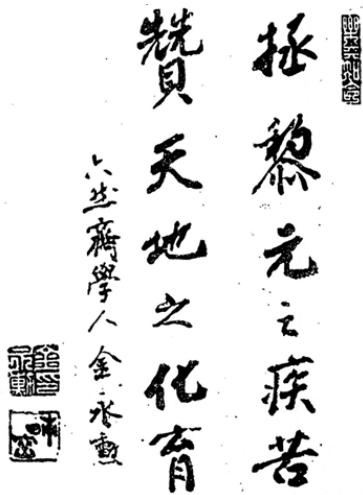 拯黎元之疾苦
贊天地之化育
六然齋學人金永勳